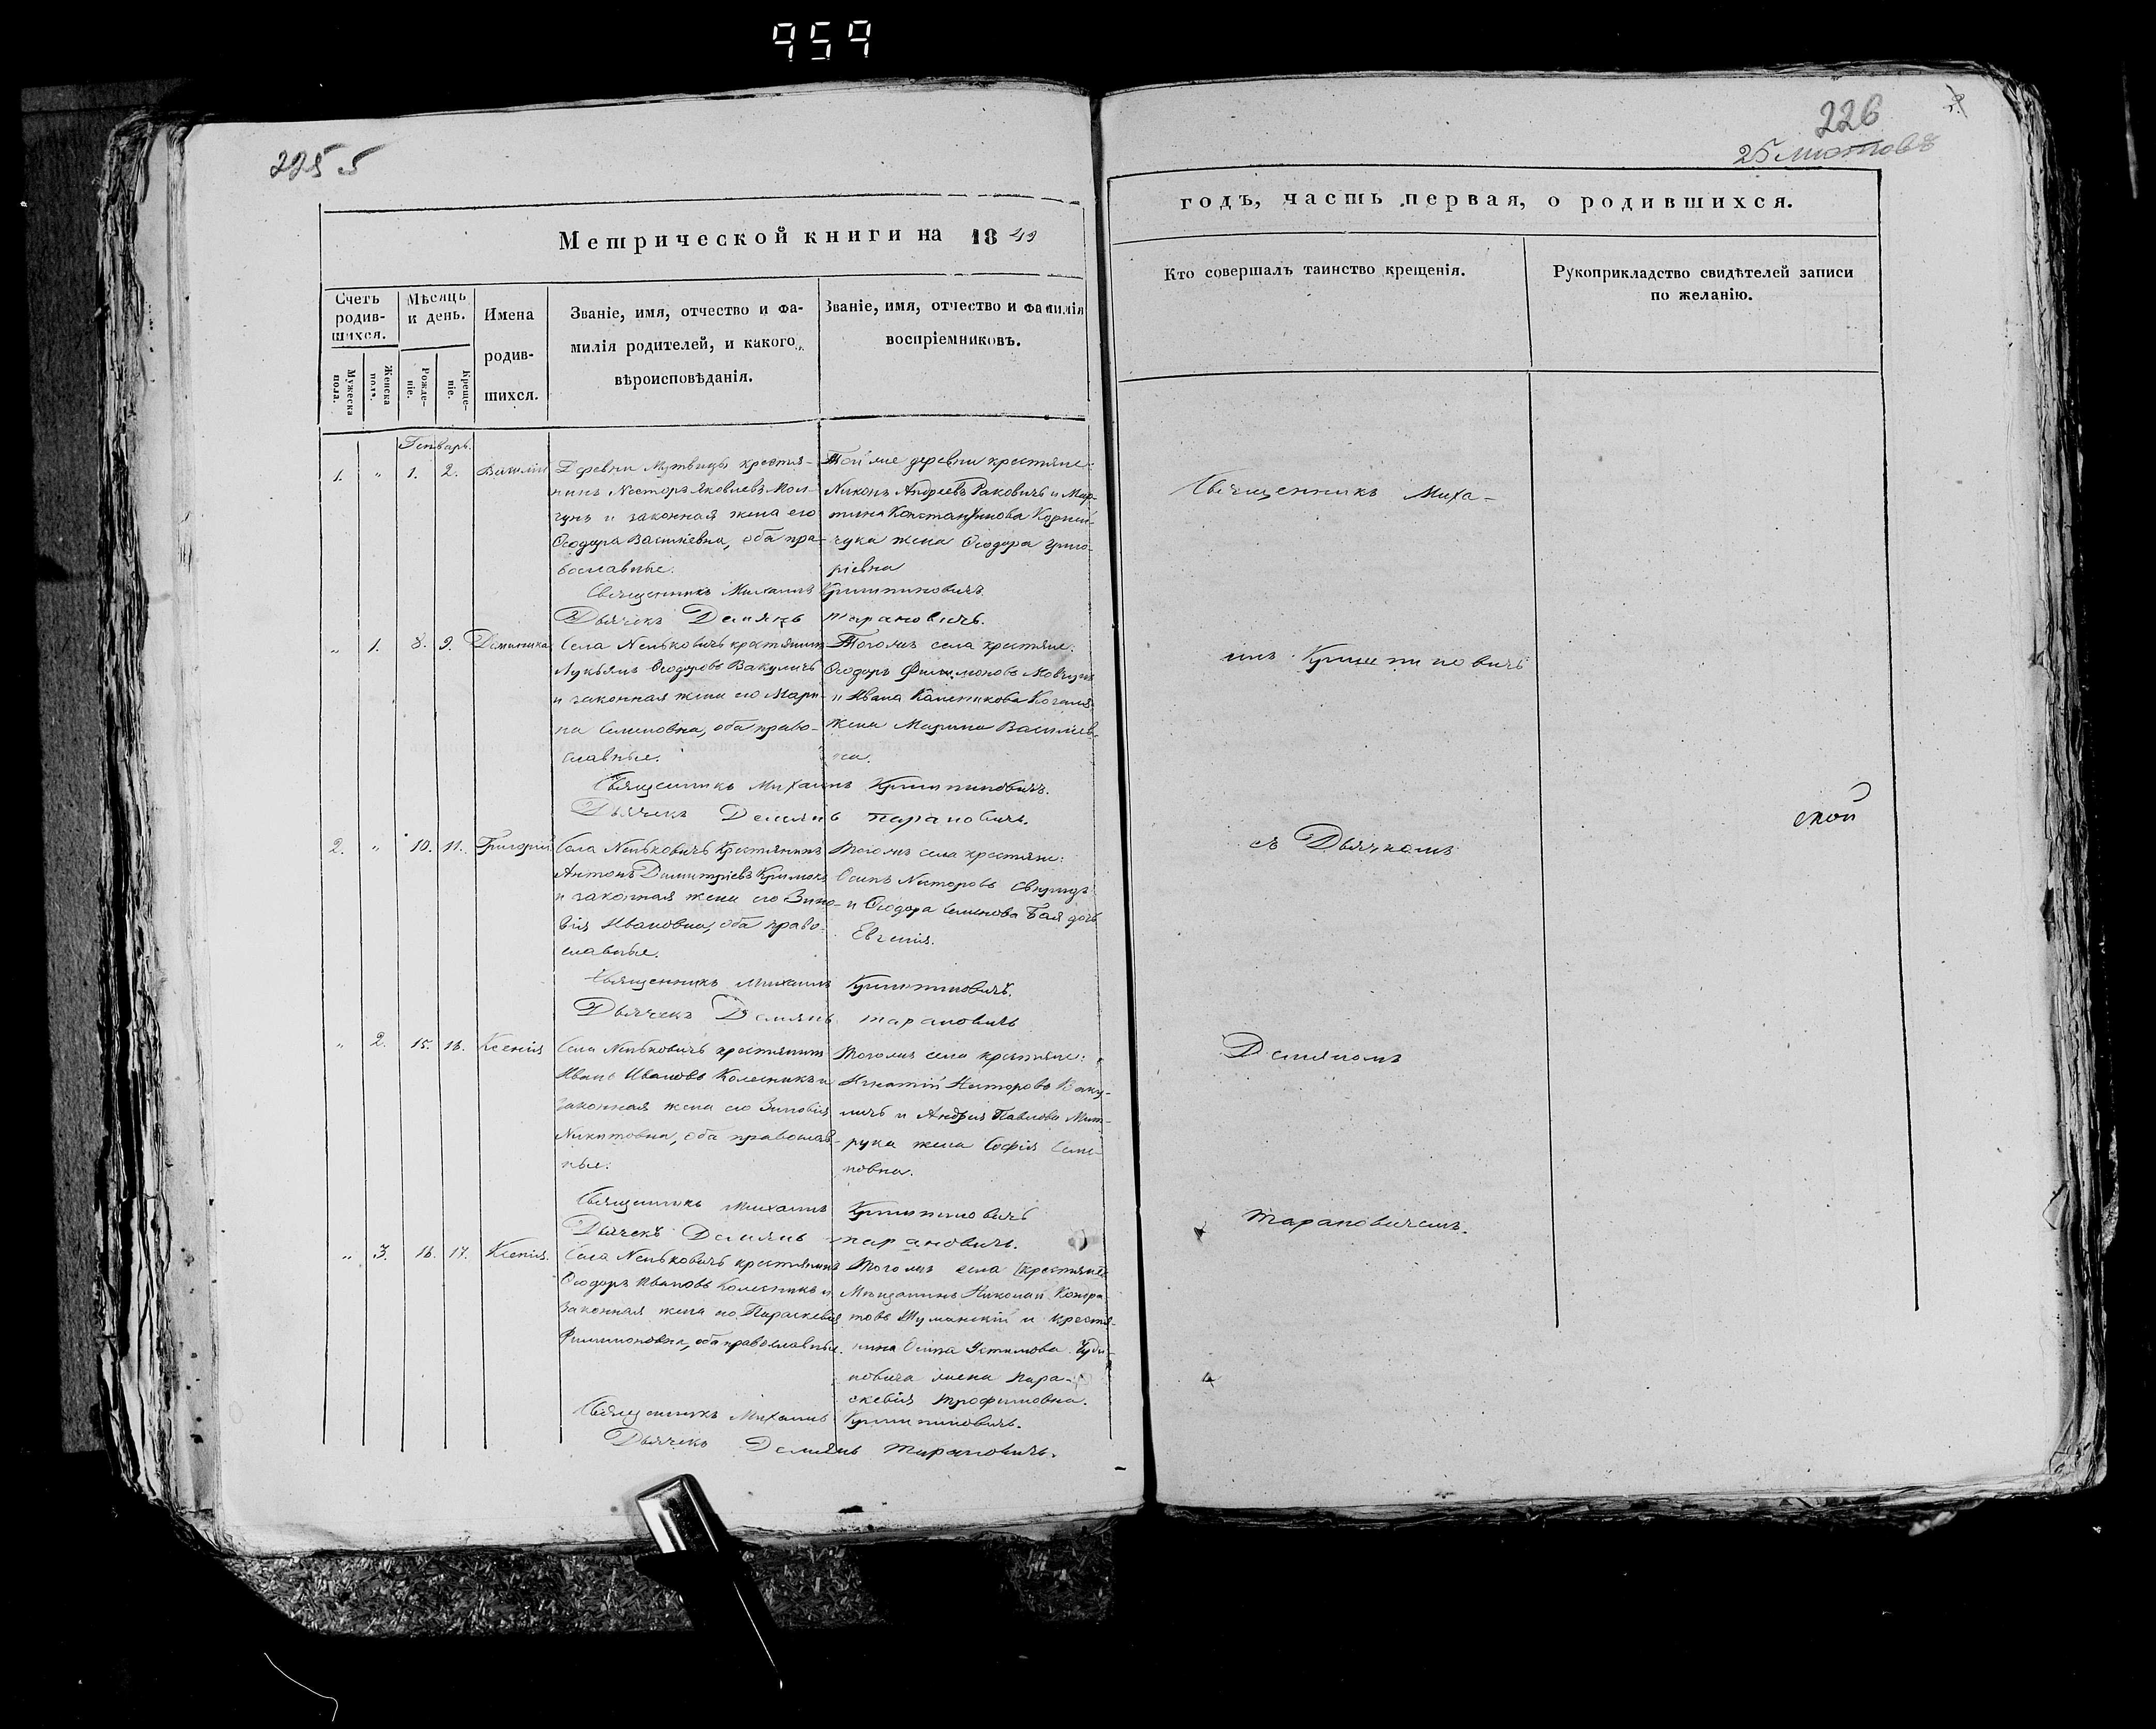 959
225 5
226
25 листовъ
Метрической книги на 1849
годъ, часть первая, о родившихся.
Счетъ родив-шихся.
Мужеска пола.
Женска пола.
Мѣсяцъ и день.
Рожде-ніе.
Креще-ніе.
Имена
родив-
шихся.
Званіе, имя, отчество и фа-
милія родителей, и какого
вѣроисповѣданія.
Званіе, имя, отчество и фамилія
воспріемниковъ.
Кто совершалъ таинство крещенія.
Рукоприкладство свидѣтелей записи
по желанію.
Генварь.
1. " 1. 2. Василій
Деревни Мутвицы крестья-
нинъ Несторъ Яковлевъ Мов-
чунъ и законная жена его
Ѳеодора Василіевна, оба пра-
вославные.
Той же деревни крестьяне:
Никонъ Андреевъ Раковичъ и Мар-
тина Константинова Корній-
чука жена Ѳеодора Григо-
ріевна
Священникъ Михаилъ Криштиновичъ.
Дьячекъ Демянъ Тарановичъ.
" 1. 8. 9. Доминика
Села Неньковичъ крестьянинъ
Лукьянъ Ѳеодоровъ Вакуличъ
и законная жена его Мари-
на Семеновна, оба право-
славные.
Тогожъ села крестьяне:
Ѳеодоръ Филимоновъ Мовчунъ
и Ивана Каленикова
жена Марина Василіев-
на.
Священникъ Михаилъ Криштиновичъ.
Дьячекъ Демянъ Тарановичъ.
2. " 10. 11. Григорій
Села Неньковичъ Крестьянинъ
Антонъ Димитріевъ
и законная жена его Зино-
вія Ивановна, оба право-
славные.
Тогожъ села крестьяне:
Осипъ Несторовъ Свиридъ
и Ѳеодора Семенова Бая дочь
Евгенія.
Священникъ Михаилъ Криштиновичъ.
Дьячекъ Демянъ Тарановичъ
" 2. 15. 16. Ксенія
Села Неньковичъ крестьянинъ
Иванъ Ивановъ Колесникъ и
законная жена его Зиновія
Никитовна, оба православ-
ные.
Тогожъ села крестьяне:
Игнатій Несторовъ Ваку-
личъ и Андрея Павлова Мит-
рука жена Софія Семе-
новна.
Священникъ Михаилъ Криштиновичъ
Дьячекъ Демянъ Тарановичъ.
" 3. 16. 17. Ксенія.
Села Неньковичъ крестьянинъ
Ѳеодоръ Ивановъ Колесникъ и
законная жена его Параскевія
Филимоновна, оба православные.
Тогожъ села крестьяне
Мѣщанинъ Николай Кондра-
товъ Шуманскій и крестья-
нина Осипа Устимова
новича жена Пара-
скевія Трофимовна.
Священникъ Михаилъ Криштиновичъ.
Дьячекъ Демянъ Тарановичъ.
Священникъ Миха-
илъ Криштиновичъ
съ Дьячкомъ
Демяномъ
Тарановичемъ.
ской